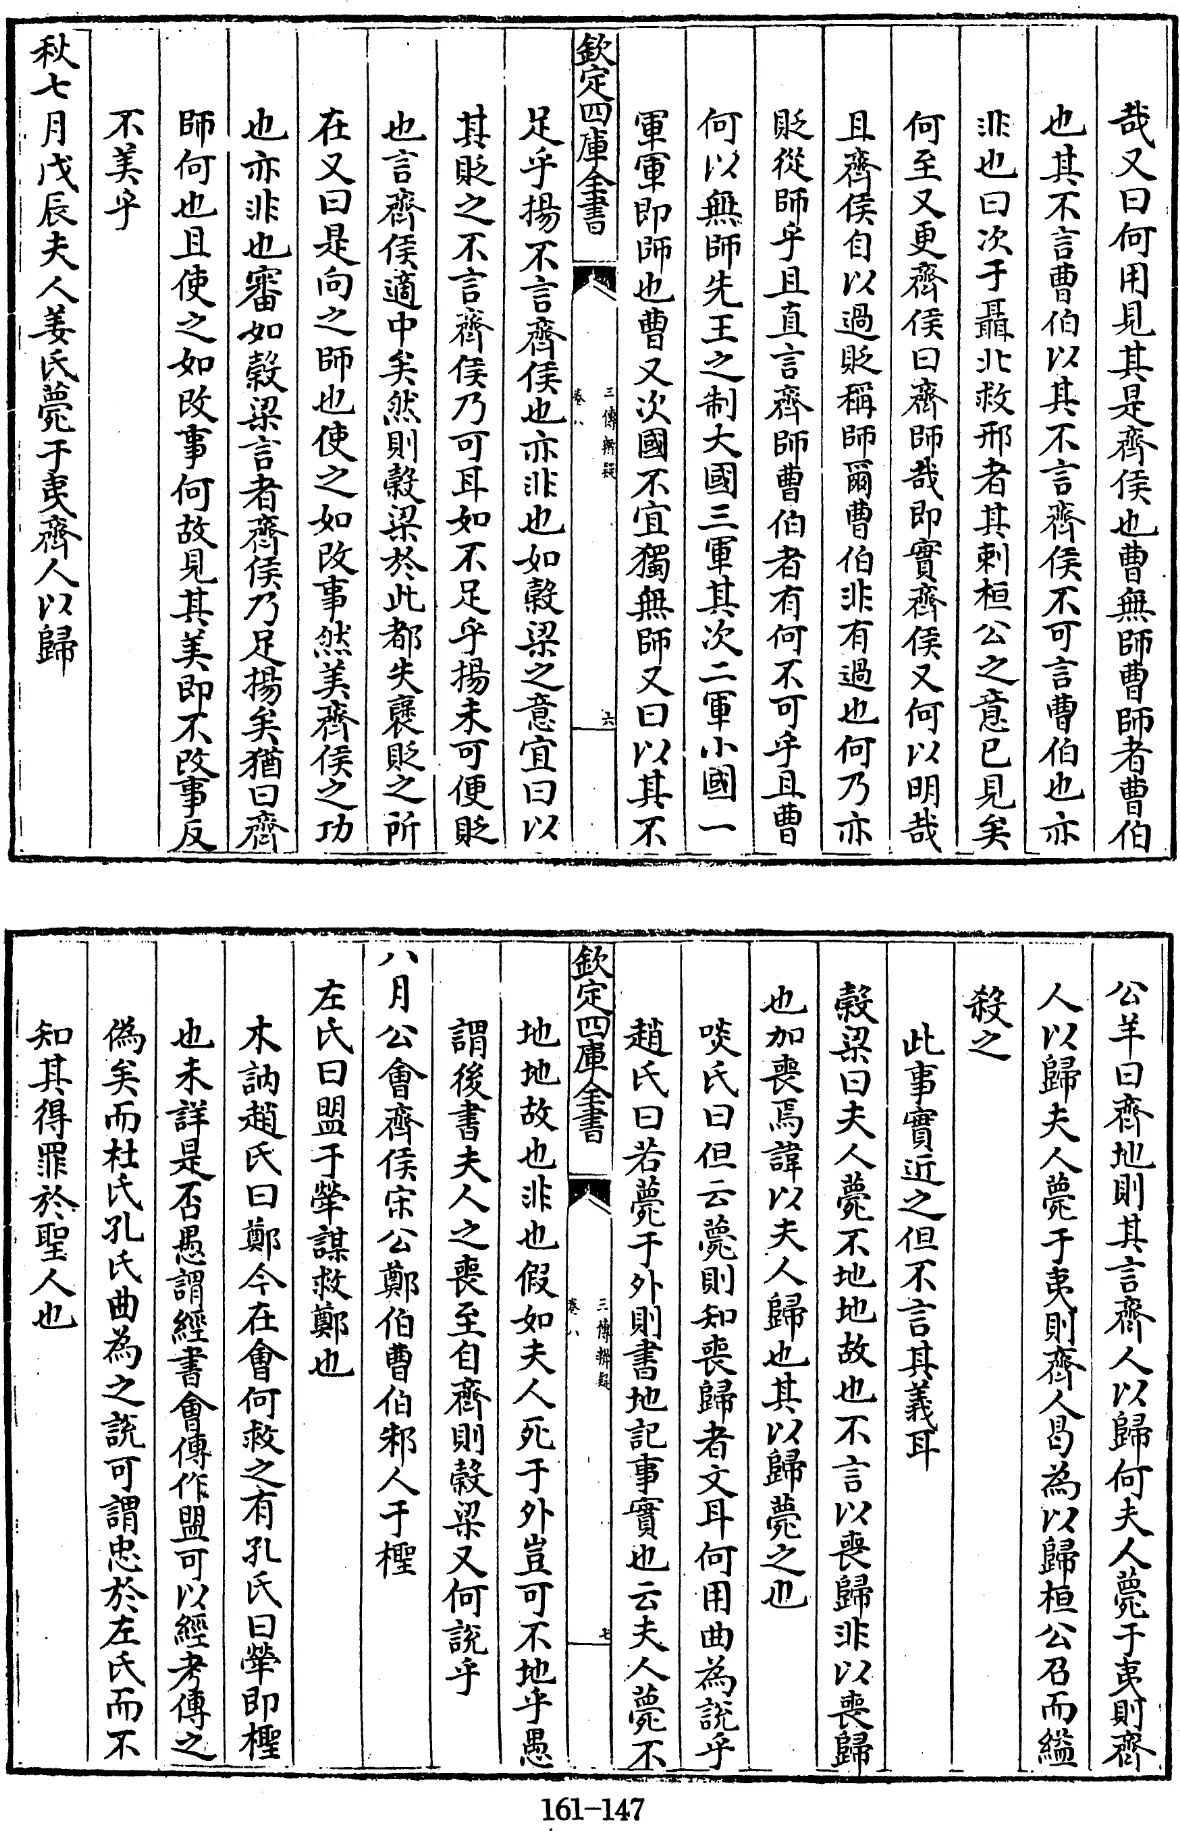 哉又曰何用見其是齊侯也曹無師曹師者曹伯
也其不言曹伯以其不言齊侯不可言曹伯也亦
非也曰次于聶北救邢者其刺桓公之意已見矣
何至又更齊侯曰齊師哉即實齊侯又何以明哉
且齊侯自以過貶稱師爾曹伯非有過也何乃亦
貶從師乎且直言齊師曹伯者有何不可乎且曹
何以無師先王之制大國三軍其次二軍小國一
軍軍即師也曹又次國不宜獨無師又曰以其不
欽定四庫全書
三傳辨疑
卷八
六
足乎揚不言齊侯也亦非也如穀梁之意宜曰以
其貶之不言齊侯乃可耳如不足乎揚未可便貶
也言齊侯適中矣然則穀梁於此都失襃貶之所
在又曰是向之師也使之如改事然美齊侯之功
也亦非也審如穀梁言者齊侯乃足揚矣猶曰齊
師何也且使之如改事何故見其美即不改事反
不美乎
秋七月戊辰夫人姜氏薨于夷齊人以歸
公羊曰齊地則其言齊人以歸何夫人薨于夷則齊
人以歸夫人薨于夷則齊人曷為以歸桓公召而縊
殺之
此事實近之但不言其義耳
穀梁曰夫人薨不地地故也不言以喪歸非以喪歸
也加喪焉諱以夫人歸也其以歸薨之也
啖氏曰但云薨則知喪歸者文耳何用曲為說乎
趙氏曰若薨于外則書地記事實也云夫人薨不
欽定四庫全書
三傳辨疑
卷八
七
地地故也非也假如夫人死于外豈可不地乎愚
謂後書夫人之喪至自齊則穀梁又何說乎
八月公會齊侯宋公鄭伯曹伯邾人于檉
左氏曰盟于犖謀救鄭也
木訥趙氏曰鄭今在會何救之有孔氏曰犖即檉
也未詳是否愚謂經書會傳作盟可以經考傳之
偽矣而杜氏孔氏曲為之說可謂忠於左氏而不
知其得罪於聖人也
161-147